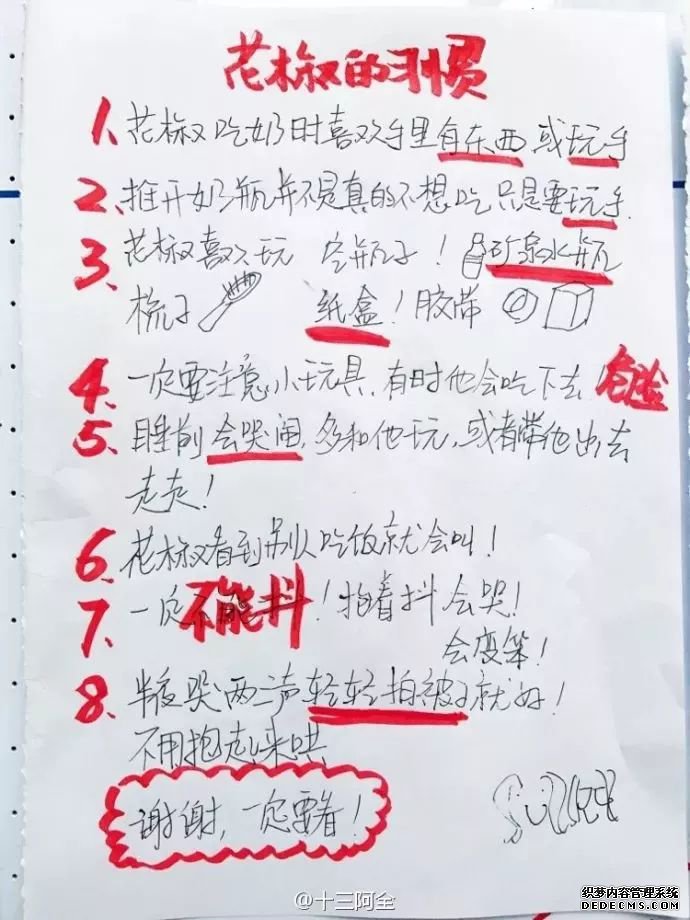 花椒的习惯
1、花椒吃奶时喜欢手里有东西或玩手
2、推开奶瓶并不是真的不想吃只是要玩手
3、花椒喜欢玩 空瓶子！矿泉水瓶
梳子 纸盒！胶带
4、一定要注意小玩具，有时他会吃下去 危险
5、睡前会哭闹，多和他玩，或者带他出去
走走！
6、花椒看到别人吃饭就会叫！
7、一定不能抖！抱着抖会哭！
会变笨！
8、半夜哭两三声轻轻拍被子就好！
不用抱起来哄
谢谢，一定要看！
@十三阿全
织梦内容管理系统
DEDECMS.COM